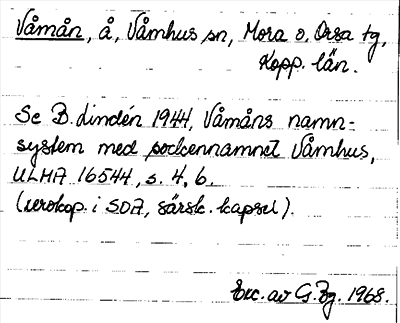 Våmån, å, Våmhus sn, Mora o. Orsa tg,
Kopp. län.
Se B. Lindén 1944, Våmåns namn-
system med sockennamnet Våmhus,
ULMA 16544, s. 4, 6.
(xerokop. i SOA, särsk. kapsel).
Exc. av G. Bg. 1968.